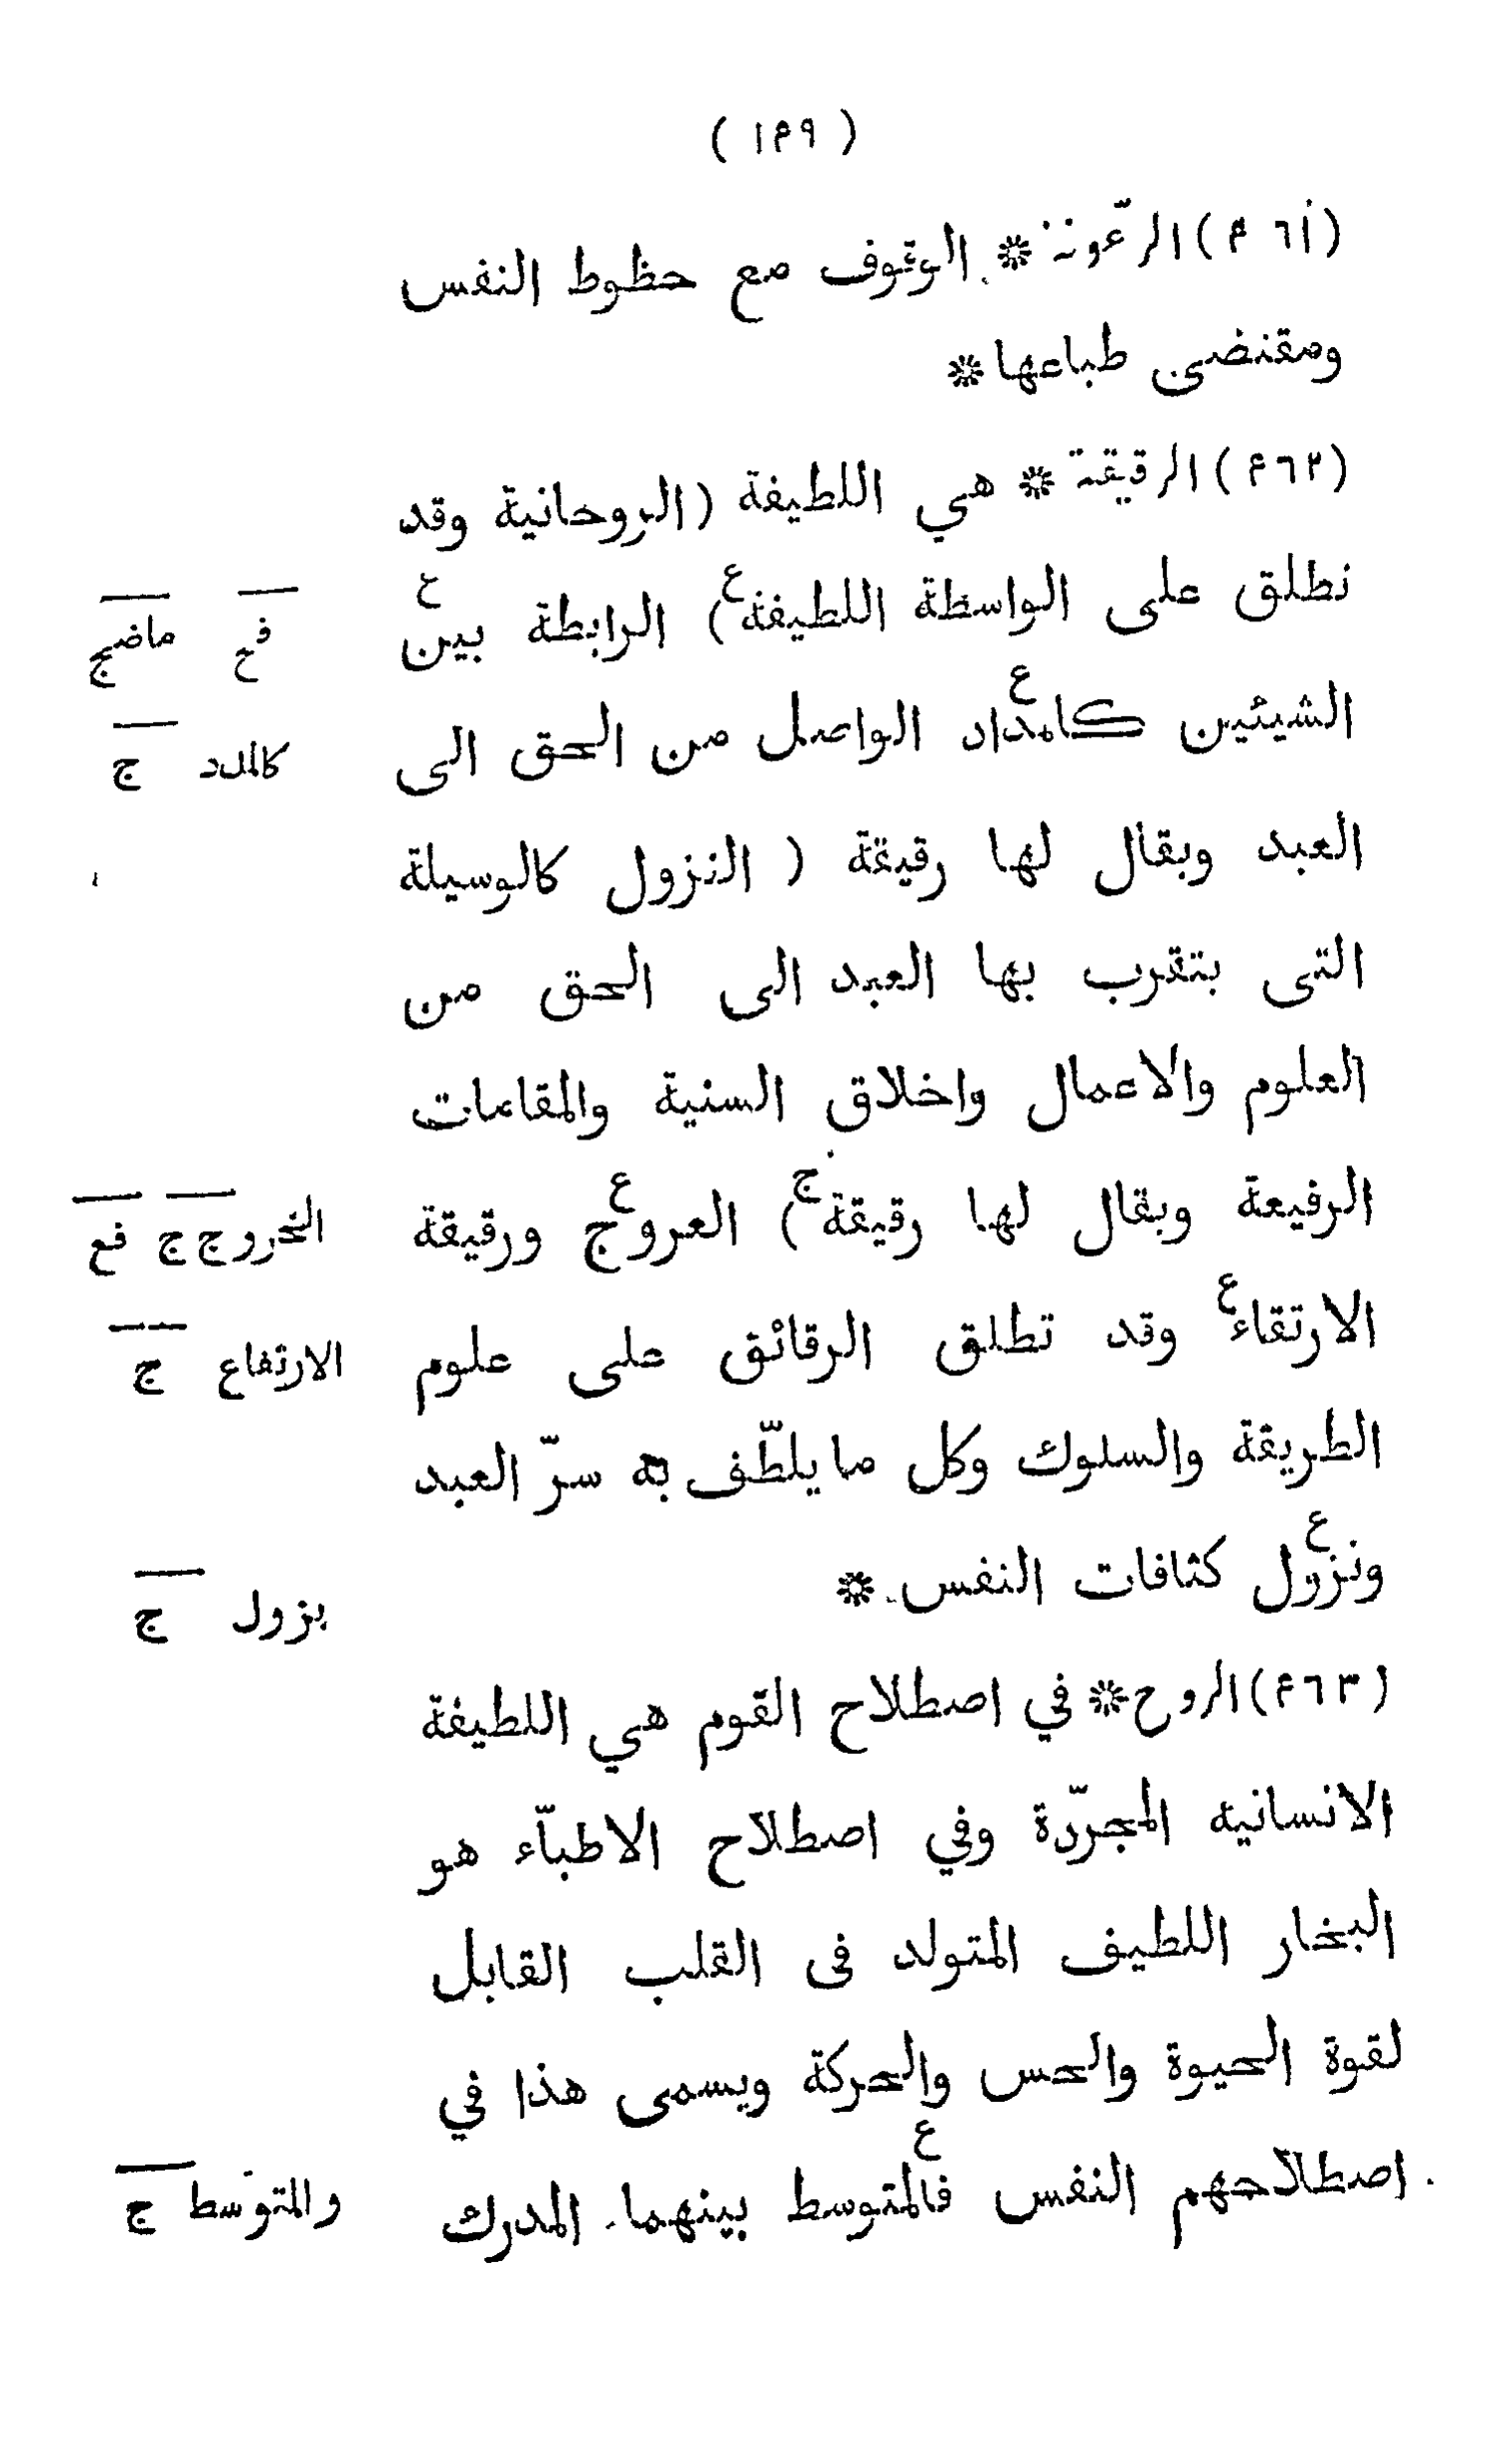 ( ١٢٩ )
(٢٦١) الرّعونة * الوقوف مع حظوط النفس
ومقتضى طباعها *
(٢٦٢) الرقيقة * هي اللطيفة (الروحانية وقد
نطلق على الواسطة اللطيفة ع) الرابطة بين ع
فح ماضج
الشيئين كامداد ع الواصل من الحق الى
كالمدد ج
العبد ويقال لها رقيقة ( النزول كالوسيلة
التى يتقرب بها العبد الى الحق من
العلوم والاعمال واخلاق السنية والمقامات
الرفيعة ويقال لها رقيقة ج) العروج ع ورقيقة
الخروج ج فع
الارتقاء ع وقد تطلق الرقائق على علوم
الارتفاع ج
الطريقة والسلوك وكل ما يلطّف به سرّ العبد
ونزول ع كثافات النفس *
يزول ج
(٢٦٣) الروح * في اصطلاح القوم هي اللطيفة
الانسانيه المجرّدة وفي اصطلاح الاطبّاء هو
البخار اللطيف المتولد فى القلب القابل
لقوة الحيوة والحس والحركة ويسمى هذا في
اصطلاحهم النفس فالمتوسط ع بينهما المدرك
والمتوسط ج